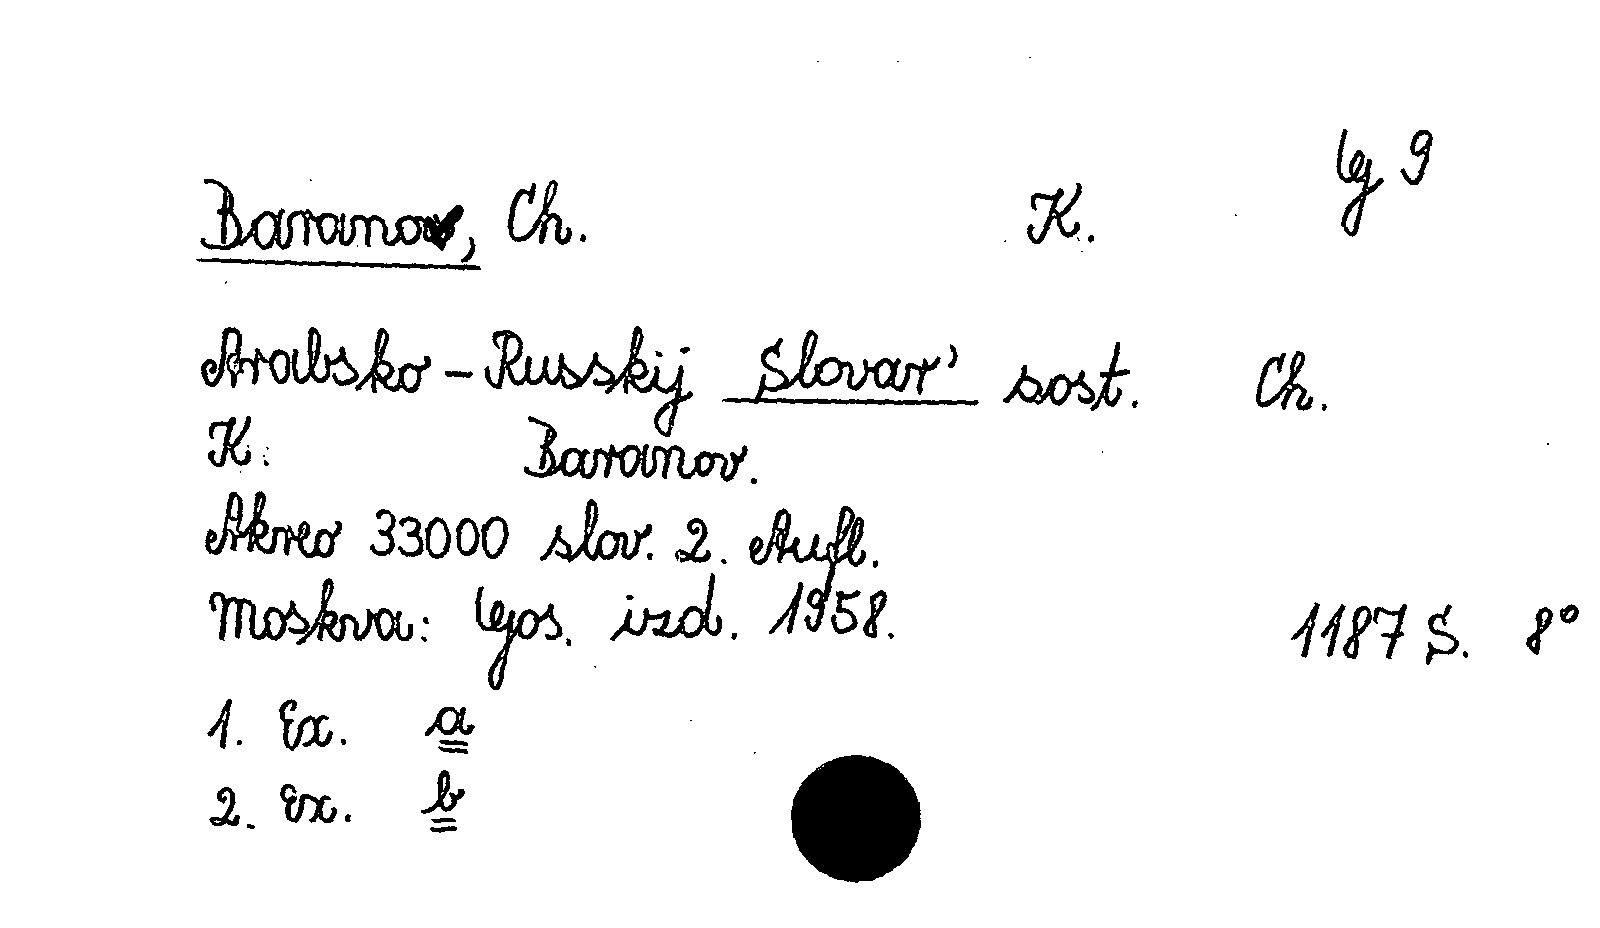 G 9
Baranov, Ch. K.
Arabsko-Russkij Slovar' sost. Ch.
K. Baranov.
Akreo 33000 slov. 2. Aufl.
Moskva: Gos. izd. 1958. 1187 S. 8°
1. Ex. a
2. Ex. b